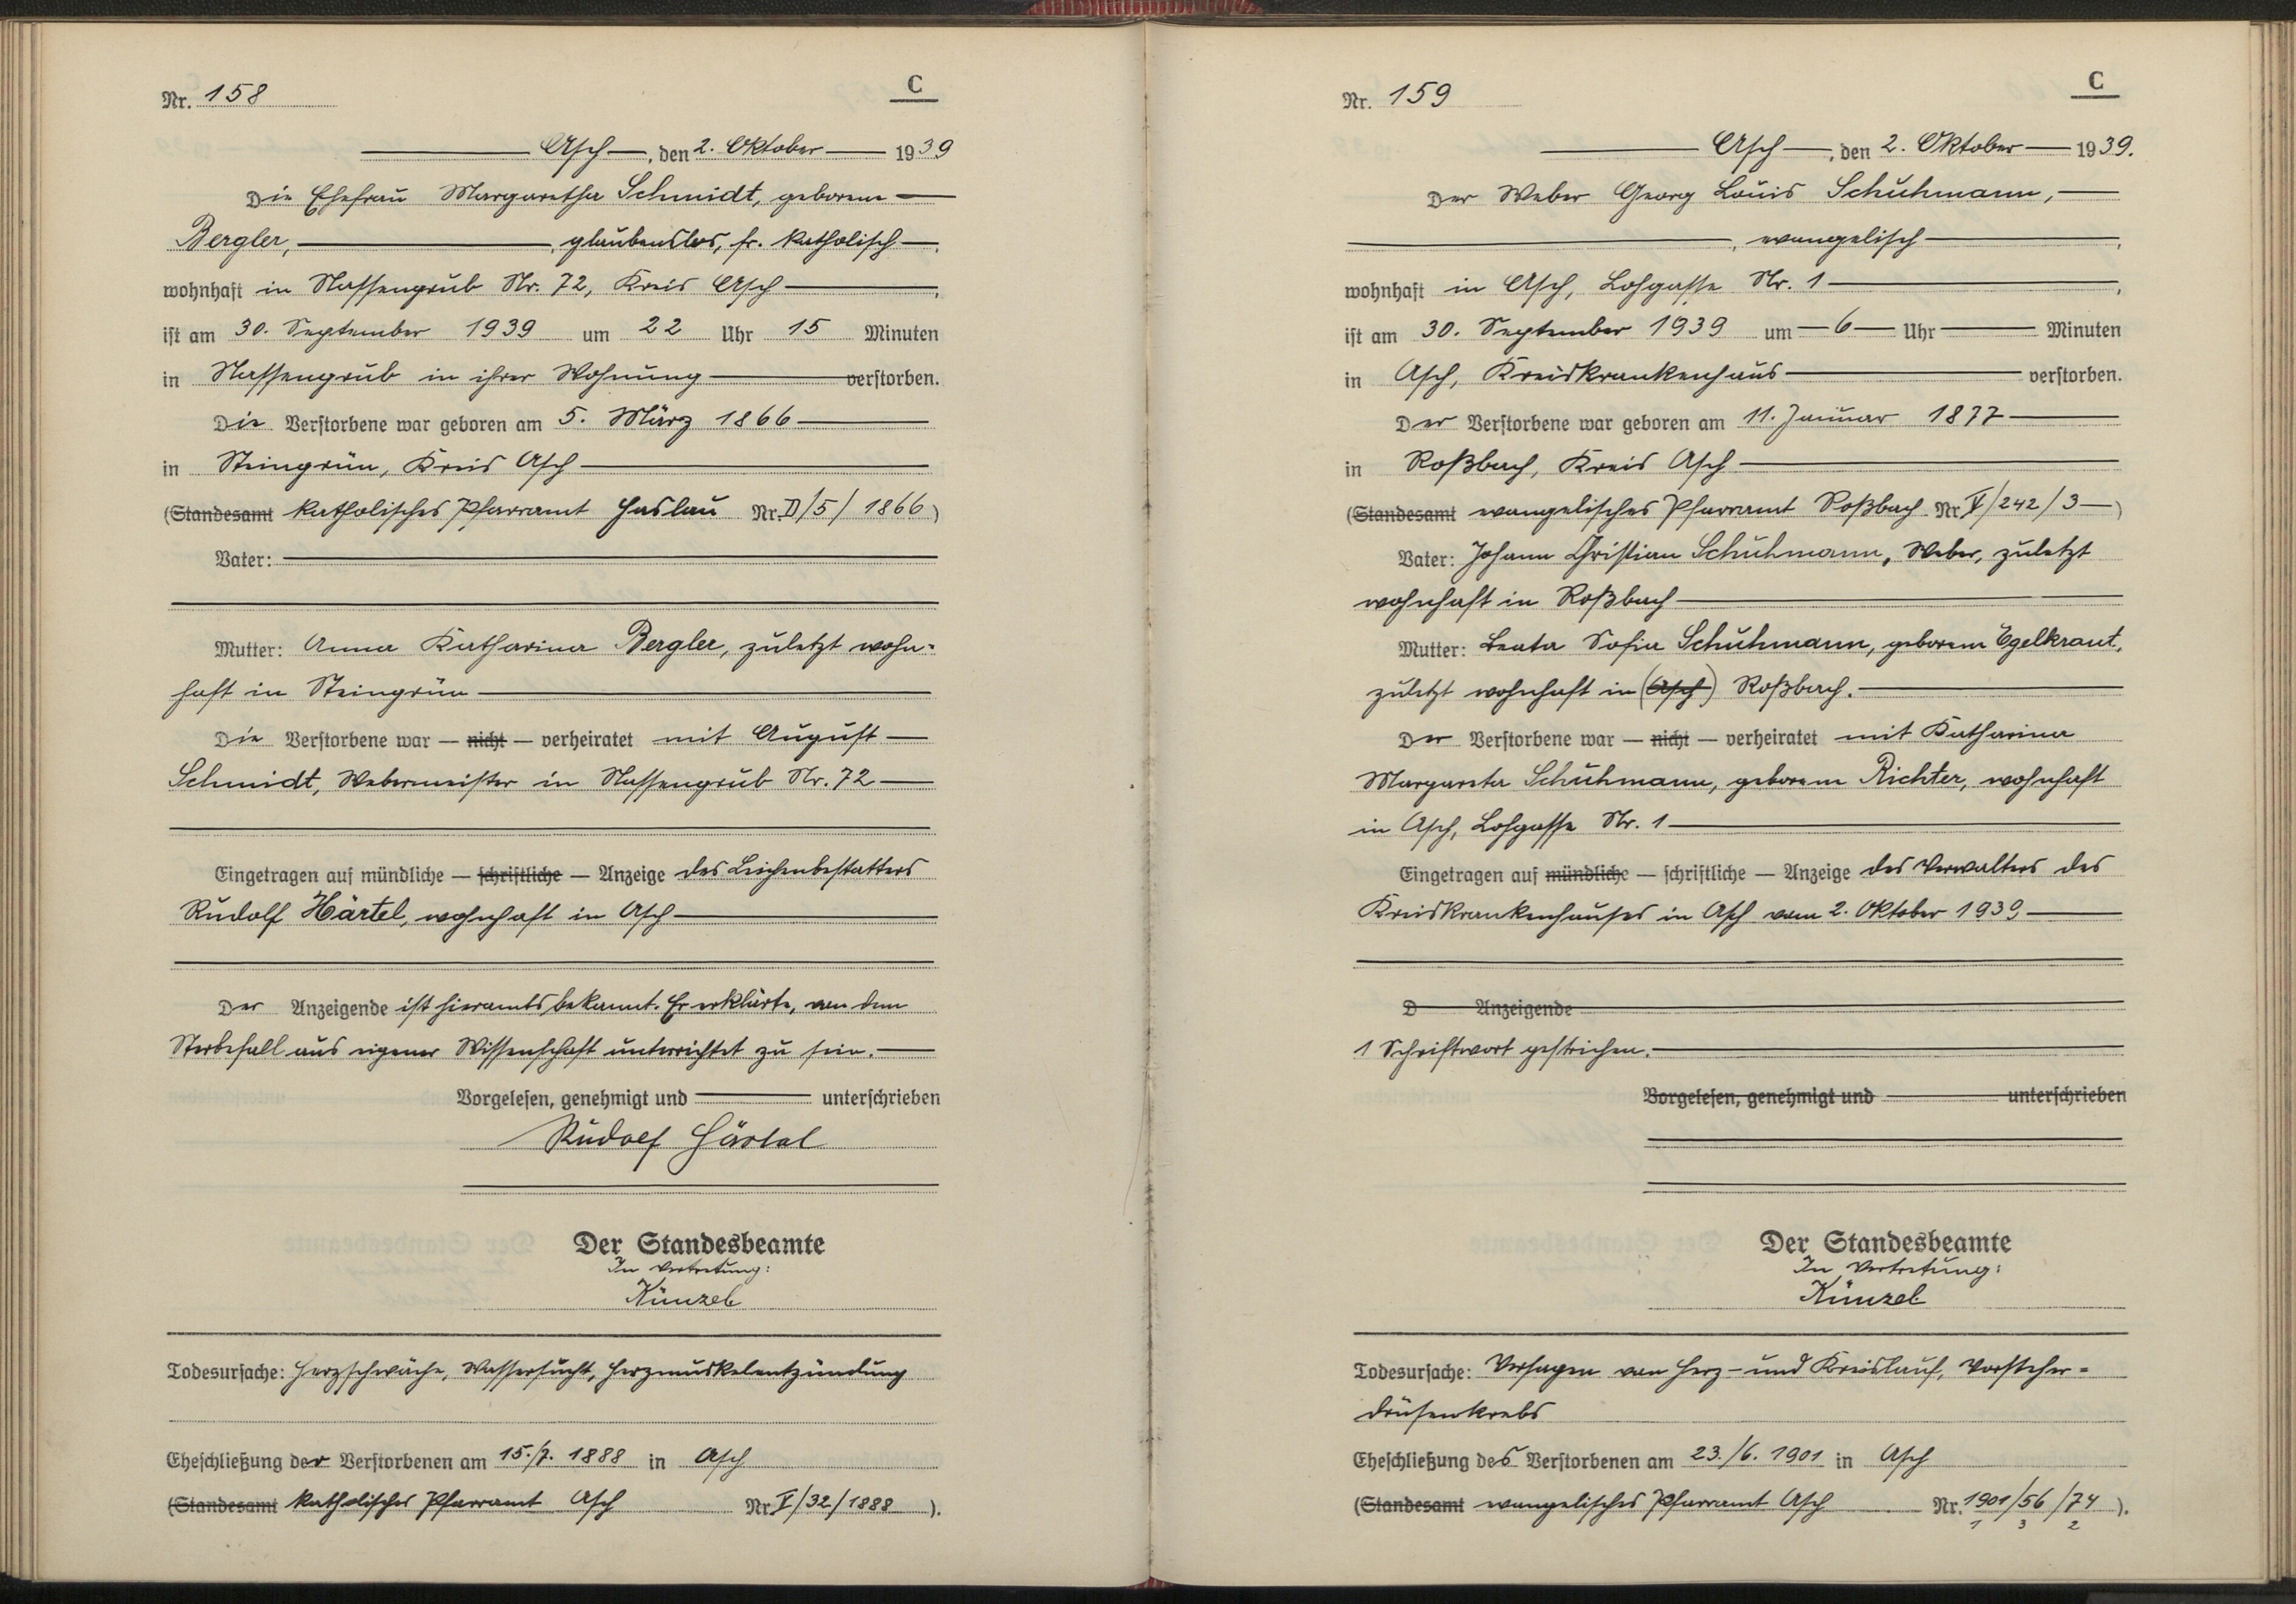 Nr. 158
C
Asch, den 2. Oktober 1939
Die Ehefrau Margaretha Schmidt, geborene
Bergler, glaubenslos, fr. katholisch,
wohnhaft in Nassengrub Nr. 72, Kreis Asch,
ist am 30. September 1939 um 22 Uhr 15 Minuten
in Nassengrub in ihrer Wohnung verstorben.
Die Verstorbene war geboren am 5. März 1866
in Steingrün, Kreis Asch
(Standesamt katholisches Pfarramt Haslau Nr. D/5/1866)
Vater:
Mutter: Anna Katharina Bergler, zuletzt wohn-
haft in Steingrün
Die Verstorbene war — nicht — verheiratet mit August
Schmidt, Webermeister in Nassengrub Nr. 72
Eingetragen auf mündliche — schriftliche — Anzeige des Leichenbestatters
Rudolf Härtel, wohnhaft in Asch
Der Anzeigende ist hieramts bekannt. Er erklärte, von dem
Sterbefall aus eigener Wissenschaft unterrichtet zu sein.
Vorgelesen, genehmigt und unterschrieben
Rudolf Härtel
Der Standesbeamte
In Vertretung:
Künzel
Todesursache: Herzschwäche, Wassersucht, Herzmuskelentzündung
Eheschließung der Verstorbenen am 15./7. 1888 in Asch
(Standesamt katholisches Pfarramt Asch Nr. V/32/1888).
Nr. 159
C
Asch, den 2. Oktober 1939.
Der Weber Georg Louis Schuhmann,
, evangelisch,
wohnhaft in Asch, Lohgasse Nr. 1,
ist am 30. September 1939 um 6 Uhr Minuten
in Asch, Kreiskrankenhaus verstorben.
Der Verstorbene war geboren am 11. Januar 1877
in Roßbach, Kreis Asch
(Standesamt evangelisches Pfarramt Roßbach Nr. V/242/3)
Vater: Johann Christian Schuhmann, Weber, zuletzt
wohnhaft in Roßbach
Mutter: Beata Sofia Schuhmann, geborene Egelkraut,
zuletzt wohnhaft in (Asch) Roßbach.
Der Verstorbene war — nicht — verheiratet mit Katharina
Margareta Schuhmann, geborene Richter, wohnhaft
in Asch, Lohgasse Nr. 1
Eingetragen auf mündliche — schriftliche — Anzeige des Verwalters des
Kreiskrankenhauses in Asch vom 2. Oktober 1939
D Anzeigende
1 Schriftwort gestrichen.
Vorgelesen, genehmigt und unterschrieben
Der Standesbeamte
In Vertretung:
Künzel
Todesursache: Versagen von Herz- und Kreislauf, Vorsteher-
drüsenkrebs
Eheschließung des Verstorbenen am 23./6. 1901 in Asch
(Standesamt evangelisches Pfarramt Asch Nr. 1901/56/74).
1 3 2